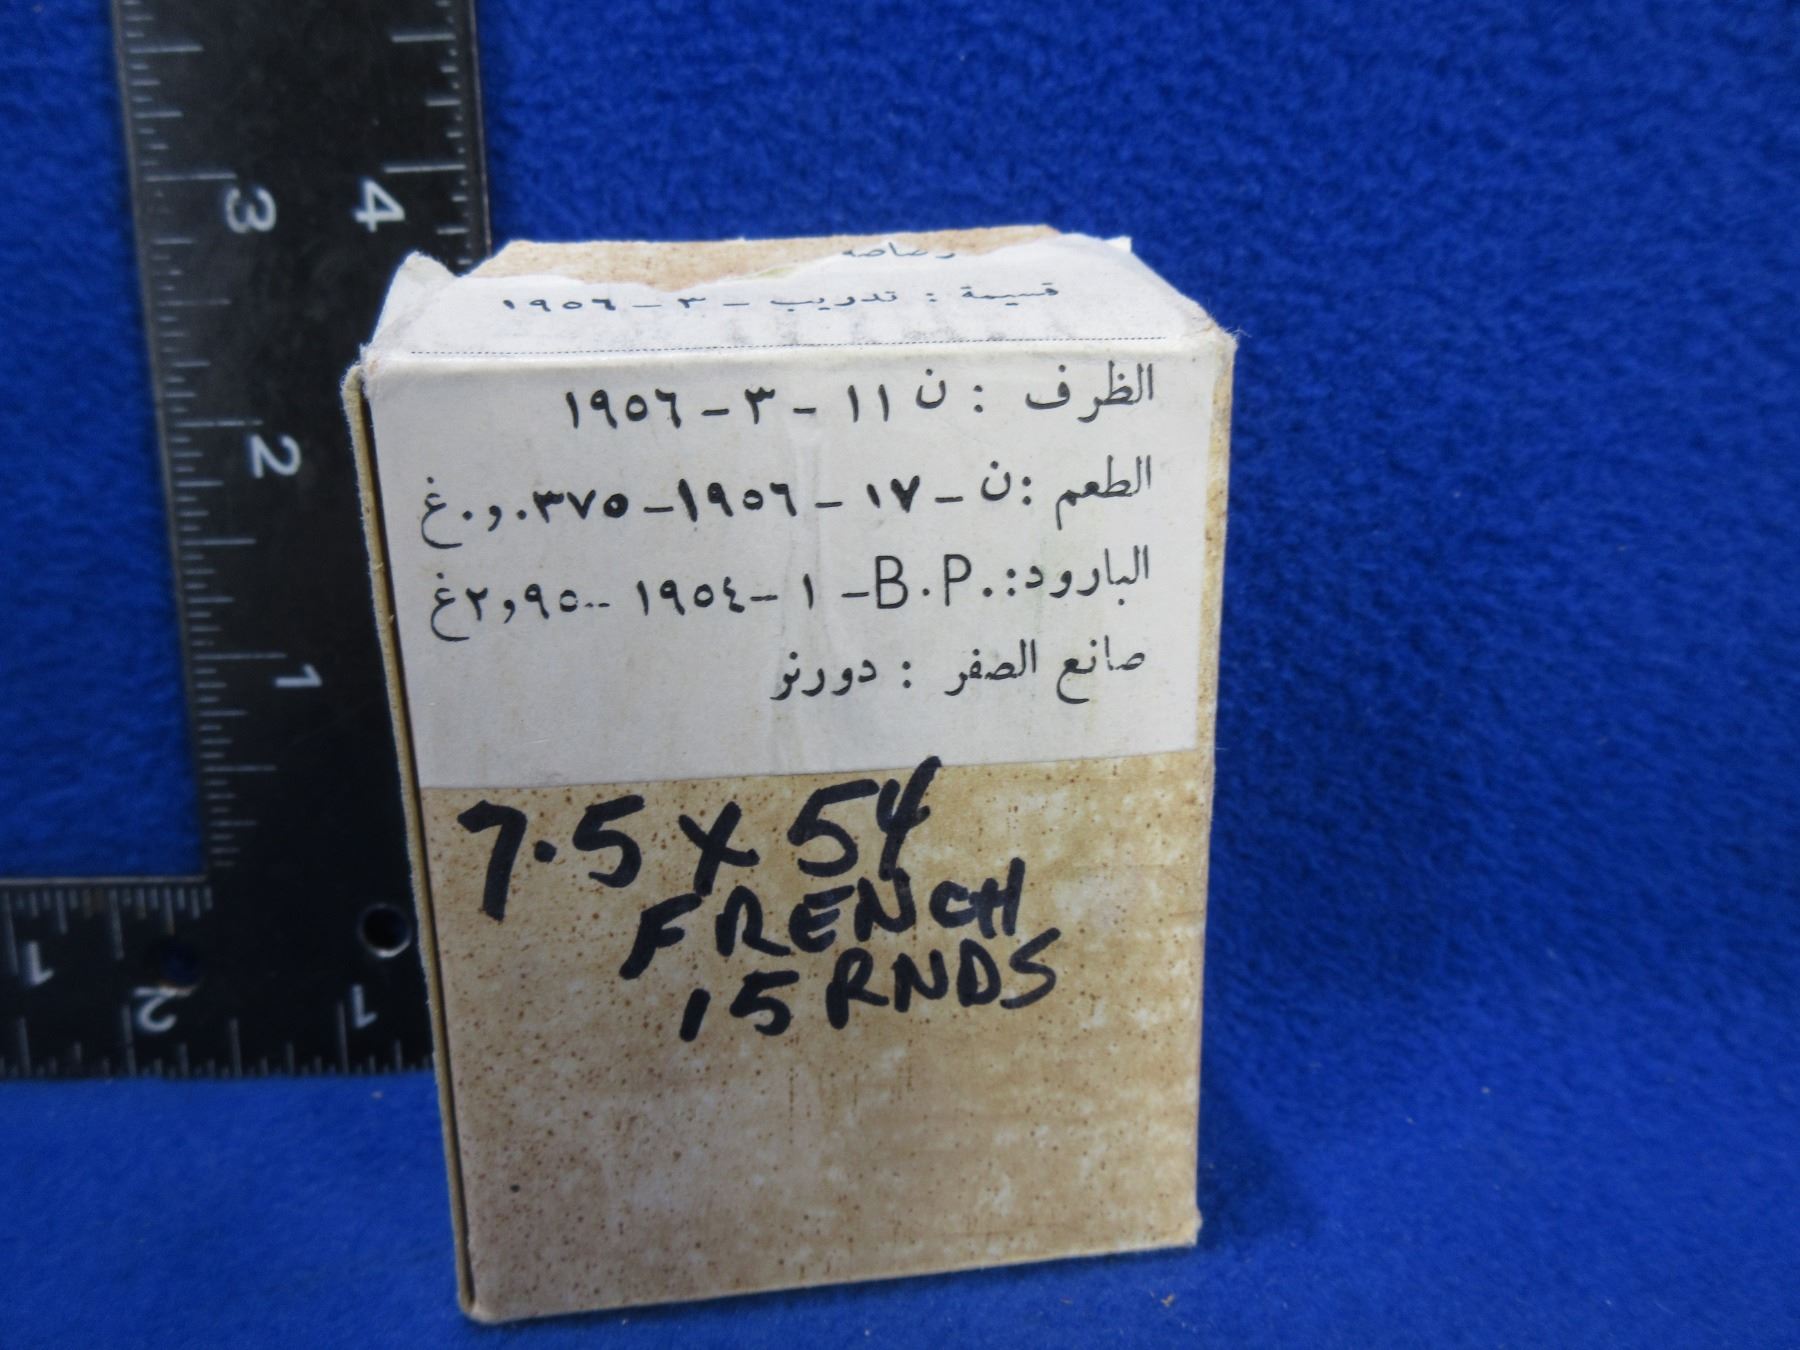 رصاصة
قسيمة : تدريب - ٣ - ١٩٥٦
الظرف : ن ١١ - ٣ - ١٩٥٦
الطعم : ن - ١٧ - ١٩٥٦ - ٠٫٠٣٧٥ غ
البارود : B.P. - ١ - ١٩٥٤ - ٢,٩٥٠٠ غ
صانع الصفر : دورنر
7.5 x 54
FRENCH
15 RNDS
3
4
2
1
1
2
1